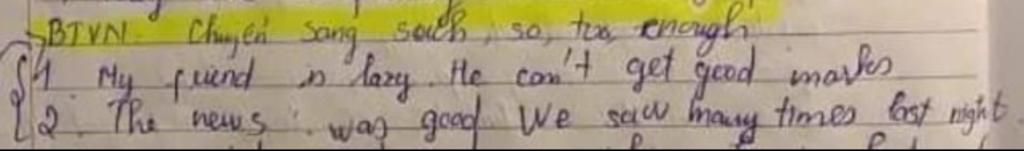 BTVN. Chuyển sang such, so, too, enough
1. My friend is lazy. He can't get good marks
2. The news was good. We saw many times last night.